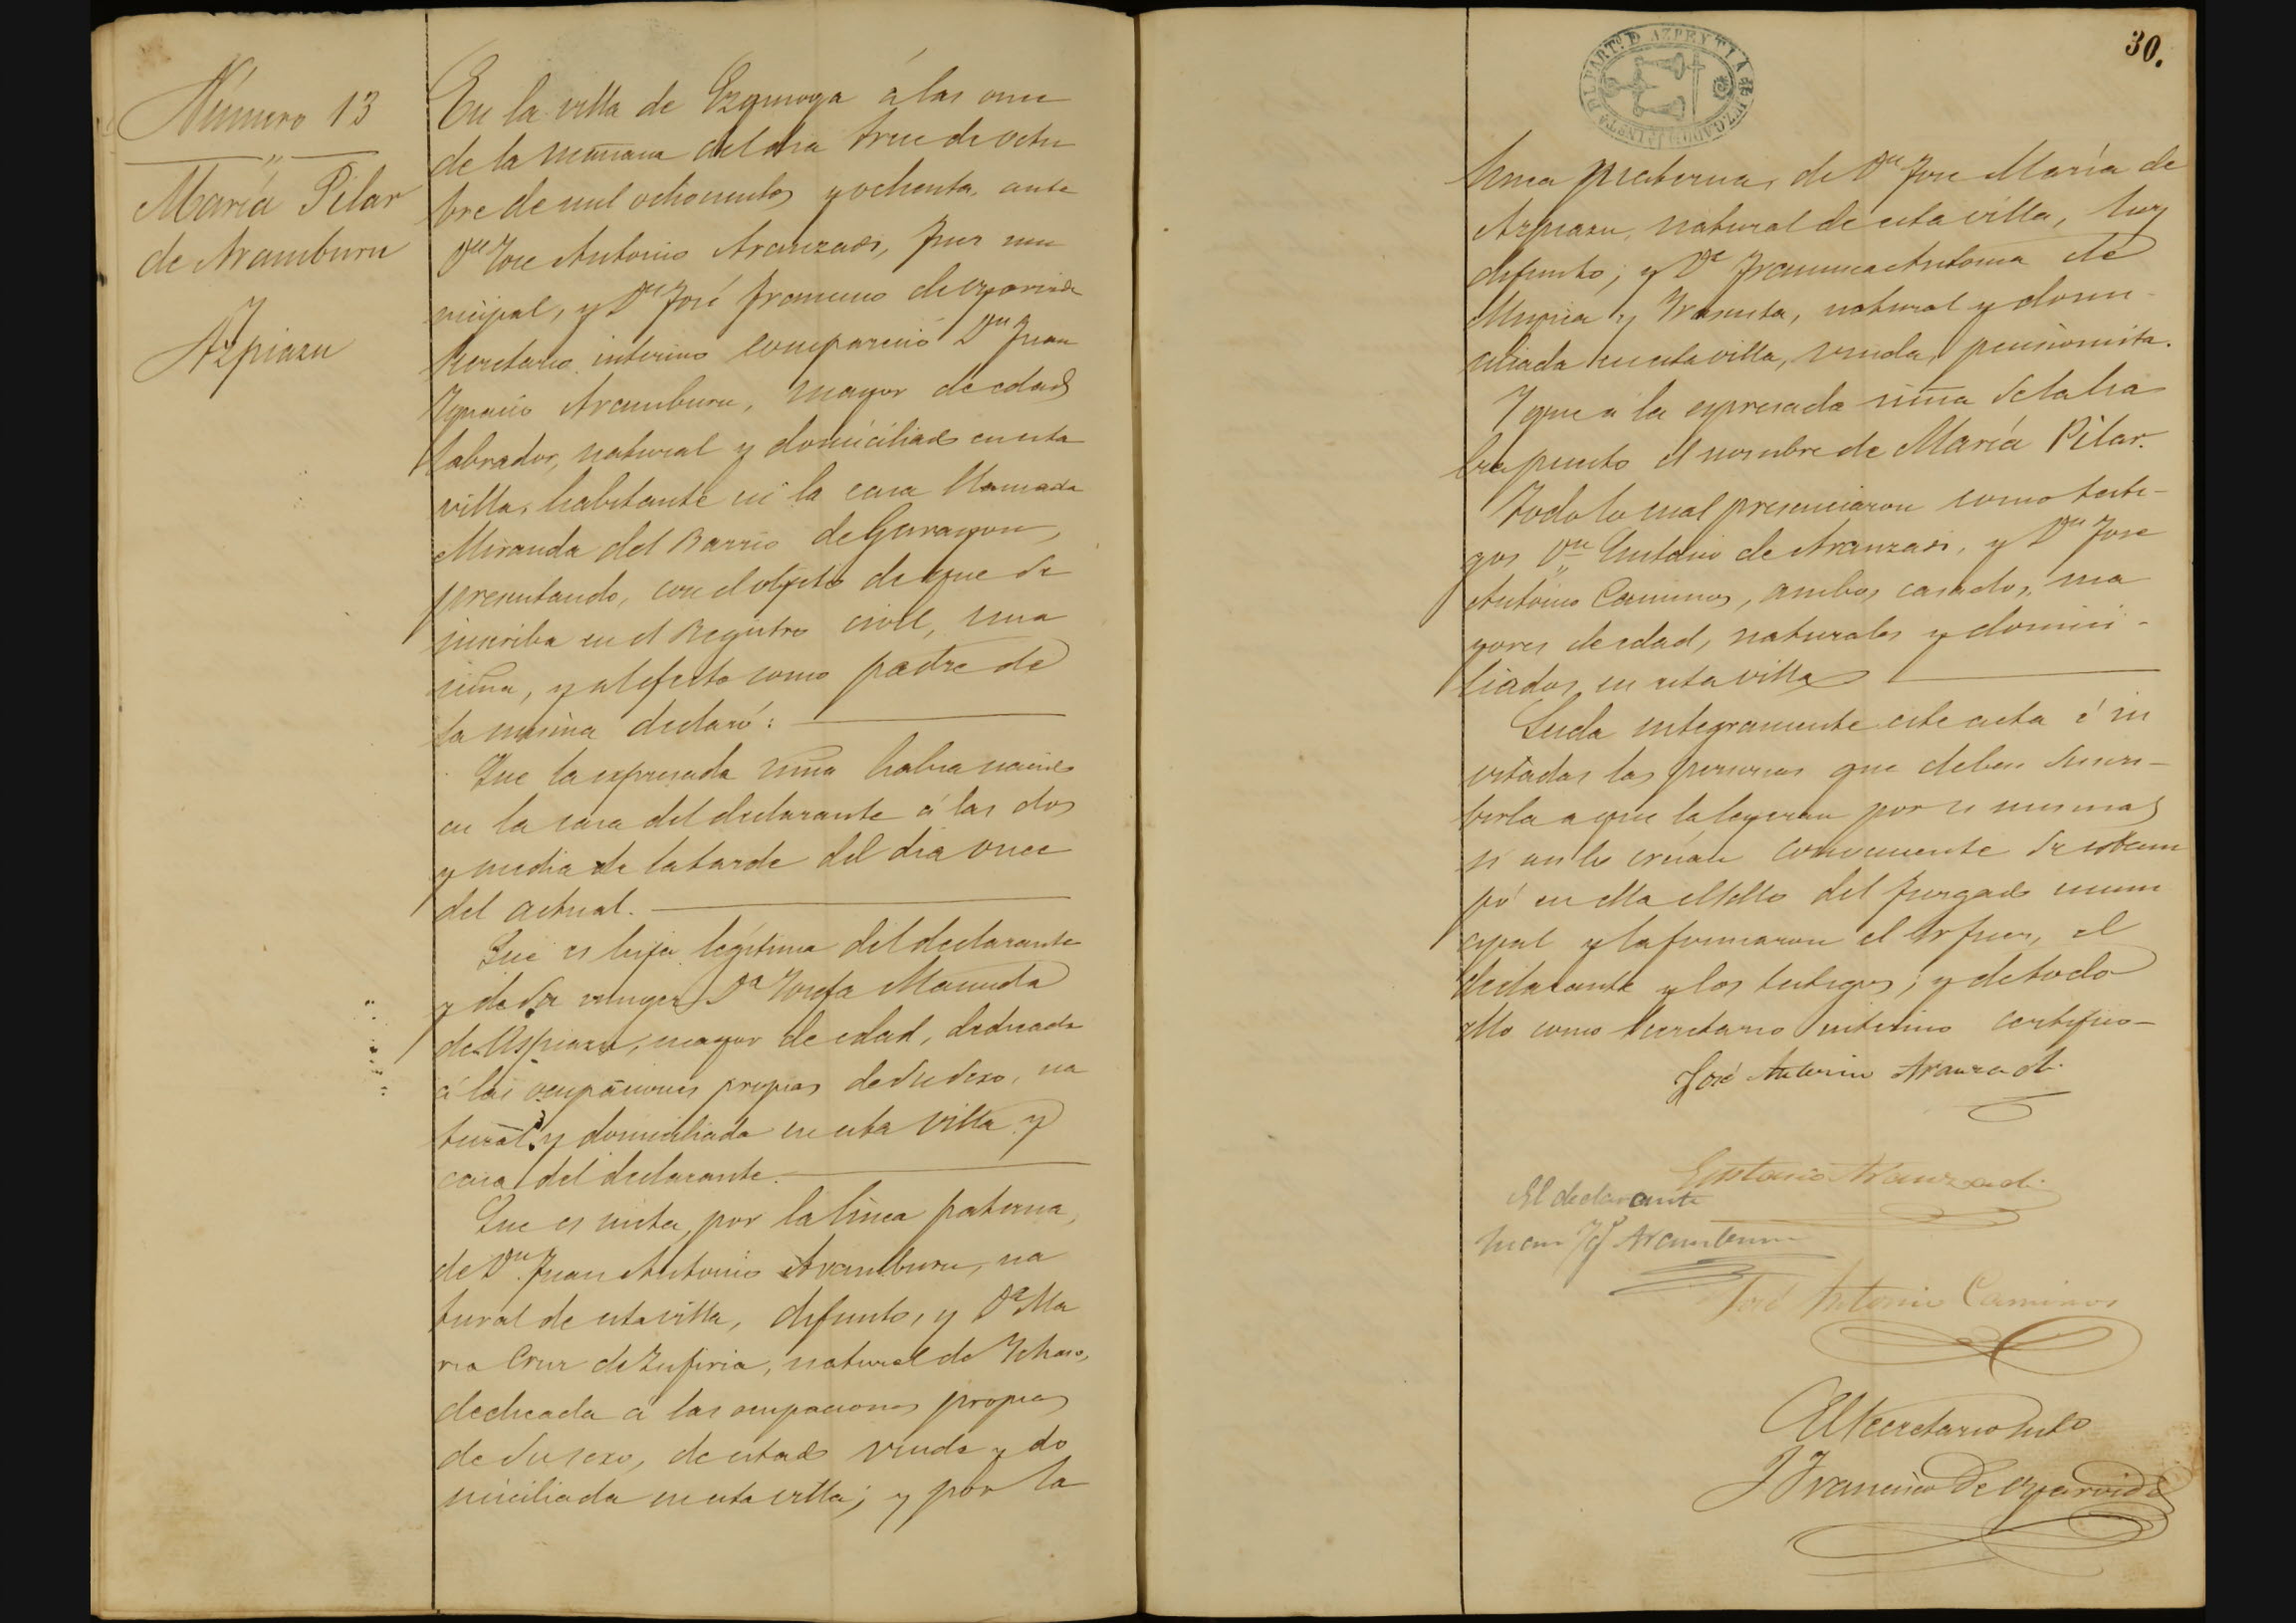 Número 13
María Pilar
de Aramburu
y
Azpiazu
En la villa de Ezquioga á las once
de la mañana del dia trece de octu
bre de mil ochocientos y ochenta, ante
Dn Jose Antonio Aranzadi, Juez mu
nicipal, y Dn José Francisco de
Secretario interino compareció Dn Juan
Ygnacio Aramburu, mayor de edad
labrador, natural y domiciliado en esta
villa, habitante en la casa llamada
Miranda del Barrio de
presentando, con el objeto de que se
inscriba en el Registro civil, una
niña, y al efecto como padre de
la misma declaró:
Que la expresada niña habia nacido
en la casa del declarante á las dos
y media de la tarde del dia once
del actual.
Que es hija legitima del declarante
y de su muger Da Josefa Manuela
de Aspiazu, mayor de edad, dedicada
á las ocupaciones propias de su sexo, na
tural y domiciliada en esta villa y
casa del declarante.
Que es nieta, por la linea paterna,
de Dn Juan Antonio Aramburu, na
tural de esta villa, difunto, y Da Ma
ria Cruz de Zufiria, natural de Ychaso,
dedicada á las ocupaciones propias
de su sexo, de estado viuda y do
miciliada en esta villa; y por la
30.
PARTº. D AZPEYTIA
linea materna, de Dn Jose María de
Azpiazu, natural de esta villa, hoy
difunto; y Da Francisca Antonia de
Mugica y natural y domi-
ciliada en esta villa, viuda, pensionista.
Y que a la expresada niña se la ha
bia puesto el nombre de María Pilar.
Todo lo cual presenciaron como testi-
gos Dn Eustasio de Aranzadi, y Dn Jose
Antonio Caminos, ambos casados, ma
yores de edad, naturales y domici-
liados en esta villa
Leida integramente este acta é in
vitadas las personas que deben suscri-
birla a que la leyeran por si mismas
si asi lo creian conveniente se estam
pó en ella el sello del Juzgado muni
cipal y la firmaron el Sr Juez, el
declarante y los testigos; y de todo
ello como Secretario interino certifico-
José Antonio Aranzadi.
Eustasio Aranzadi
El declarante
Juan Ygº Aramburu
José Antonio Caminos
El Secretario Into
J Francisco de